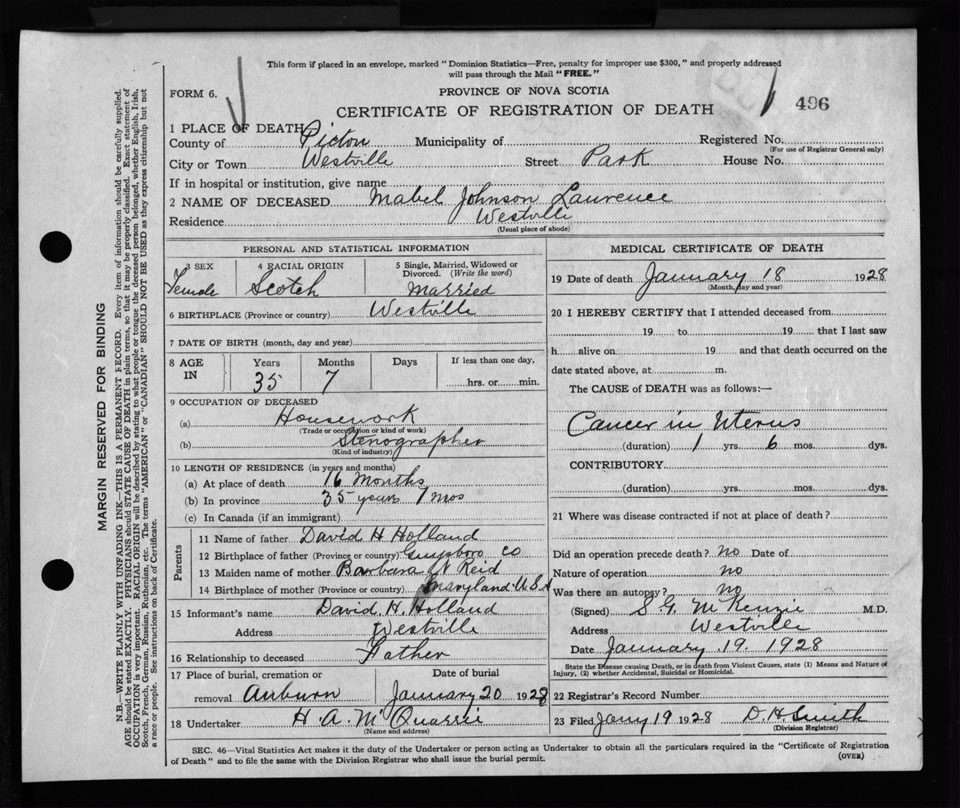 This form if placed in an envelope, marked "Dominion Statistics—Free, penalty for improper use $300," and properly addressed
will pass through the Mail "FREE."
FORM 6.
PROVINCE OF NOVA SCOTIA
CERTIFICATE OF REGISTRATION OF DEATH
496
1 PLACE OF DEATH
County of Pictou Municipality of Registered No.
(For use of Registrar General only)
City or Town Westville Street Park House No.
If in hospital or institution, give name
2 NAME OF DECEASED Mabel Johnson Laurence
Residence Westville
(Usual place of abode)
PERSONAL AND STATISTICAL INFORMATION
3 SEX
Female
4 RACIAL ORIGIN
Scotch
5 Single, Married, Widowed or
Divorced. (Write the word)
Married
6 BIRTHPLACE (Province or country) Westville
7 DATE OF BIRTH (month, day and year)
8 AGE IN
Years Months Days
35 7
If less than one day,
hrs. or min.
9 OCCUPATION OF DECEASED
(a) Housework
(Trade or occupation or kind of work)
(b) Stenographer
(Kind of industry)
10 LENGTH OF RESIDENCE (in years and months)
(a) At place of death 16 Months
(b) In province 35 years 7 mos
(c) In Canada (if an immigrant)
Parents
11 Name of father David H Holland
12 Birthplace of father (Province or country) Guysboro Co
13 Maiden name of mother Barbara N Reid
14 Birthplace of mother (Province or country) Maryland U.S.A
15 Informant's name David H. Holland
Address Westville
16 Relationship to deceased Father
17 Place of burial, cremation or
removal Auburn
Date of burial
January 20 1928
18 Undertaker H. A. McQuarrie
(Name and address)
MEDICAL CERTIFICATE OF DEATH
19 Date of death January 18 1928
(Month, day and year)
20 I HEREBY CERTIFY that I attended deceased from
19 to 19 that I last saw
h alive on 19 and that death occurred on the
date stated above, at m.
The CAUSE of DEATH was as follows:—
Cancer in Uterus
(duration) 1 yrs. 6 mos. dys.
CONTRIBUTORY
(duration) yrs. mos. dys.
21 Where was disease contracted if not at place of death?
Did an operation precede death? no Date of
Nature of operation no
Was there an autopsy? no
(Signed) S G McKenzie M.D.
Address Westville
Date January 19. 1928
State the Disease causing Death, or in death from Violent Causes, state (1) Means and Nature of
Injury, (2) whether Accidental, Suicidal or Homicidal.
22 Registrar's Record Number
23 Filed Jany 19 1928 D. H Smith
(Division Registrar)
SEC. 46—Vital Statistics Act makes it the duty of the Undertaker or person acting as Undertaker to obtain all the particulars required in the "Certificate of Registration
of Death" and to file the same with the Division Registrar who shall issue the burial permit.
(OVER)
MARGIN RESERVED FOR BINDING
N.B.—WRITE PLAINLY, WITH UNFADING INK—THIS IS A PERMANENT RECORD. Every item of information should be carefully supplied.
AGE should be stated EXACTLY. PHYSICIANS should STATE CAUSE OF DEATH in plain terms, so that it may be properly classified. Exact statement of
OCCUPATION is very important. RACIAL ORIGIN will be described by stating to what people or tongue the deceased person belonged, whether English, Irish,
Scotch, French, German, Russian, Ruthenian, etc. The terms "AMERICAN" or "CANADIAN" SHOULD NOT BE USED as they express citizenship but not
a race or people. See instructions on back of Certificate.